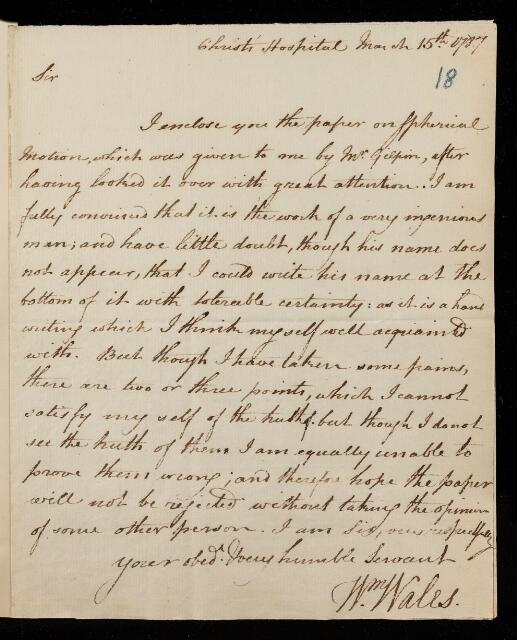 Christ's Hospital March 15th 1787
18
Sir
I enclose you the paper on Spherical
Motion, which was given to me by Mr. Gilpin, after
having looked it over with great attention. I am
fully convinced that it is the work of a very ingenious
man; and have little doubt, though his name does
not appear, that I could write his name at the
bottom of it with tolerable certainty: as it is a hand
writing which I think myself well acquainted
with. But though I have taken some pains,
there are two or three points, which I cannot
satisfy my self of the truth of: but though I do not
see the truth of them I am equally unable to
prove them wrong; and therefore hope the paper
will not be rejected without taking the opinion
of some other person. I am Sir, very respectfully
your obedt. & very humble Servant
Wm. Wales.